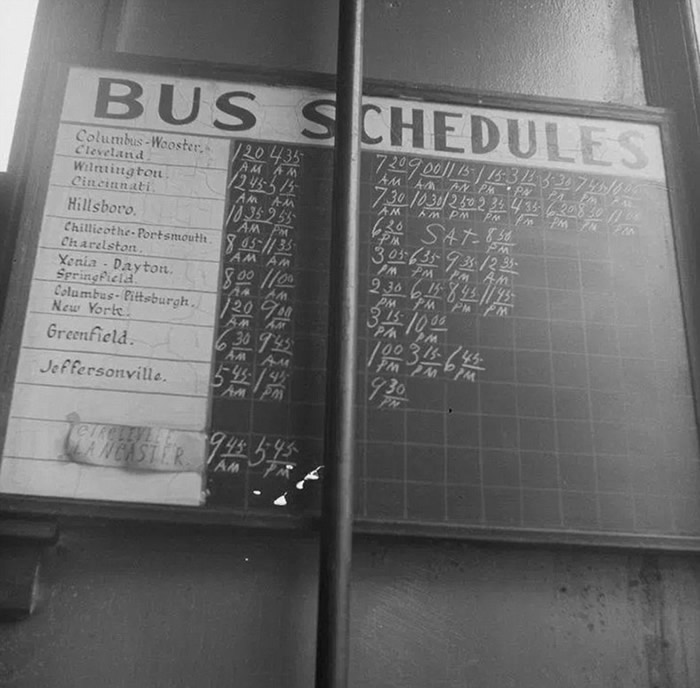 BUS SCHEDULES
Columbus-Wooster.
Cleveland.
1 20 4 35 7 20 9 00 11 15 1 15 3 15 5 30 7 45 10 05
AM AM AM AM AM PM PM PM PM PM
Wilmington.
Cincinnati.
12 45 5 15 7 30 10 30 12 50 2 35 4 35 6 20 8 30 11 00
AM AM AM AM PM PM PM PM PM PM
Hillsboro.
10 35 9 55 6 20 SAT- 8 50
AM PM PM PM
Chillicothe-Portsmouth.
Charelston.
8 05 11 35 3 05 6 35 9 35 12 35
AM AM PM PM PM AM
Xenia - Dayton.
Springfield.
8 00 11 00 2 30 6 15 8 45 11 45
AM AM PM PM PM PM
Columbus-Pittsburgh.
New York.
1 20 9 00 3 15 10 00
AM AM PM PM
Greenfield.
6 30 9 45 1 00 3 15 6 45
AM AM PM PM PM
Jeffersonville.
5 45 1 45 9 30
AM PM PM
CIRCLEVILLE
LANCASTER
9 45 5 45
AM PM